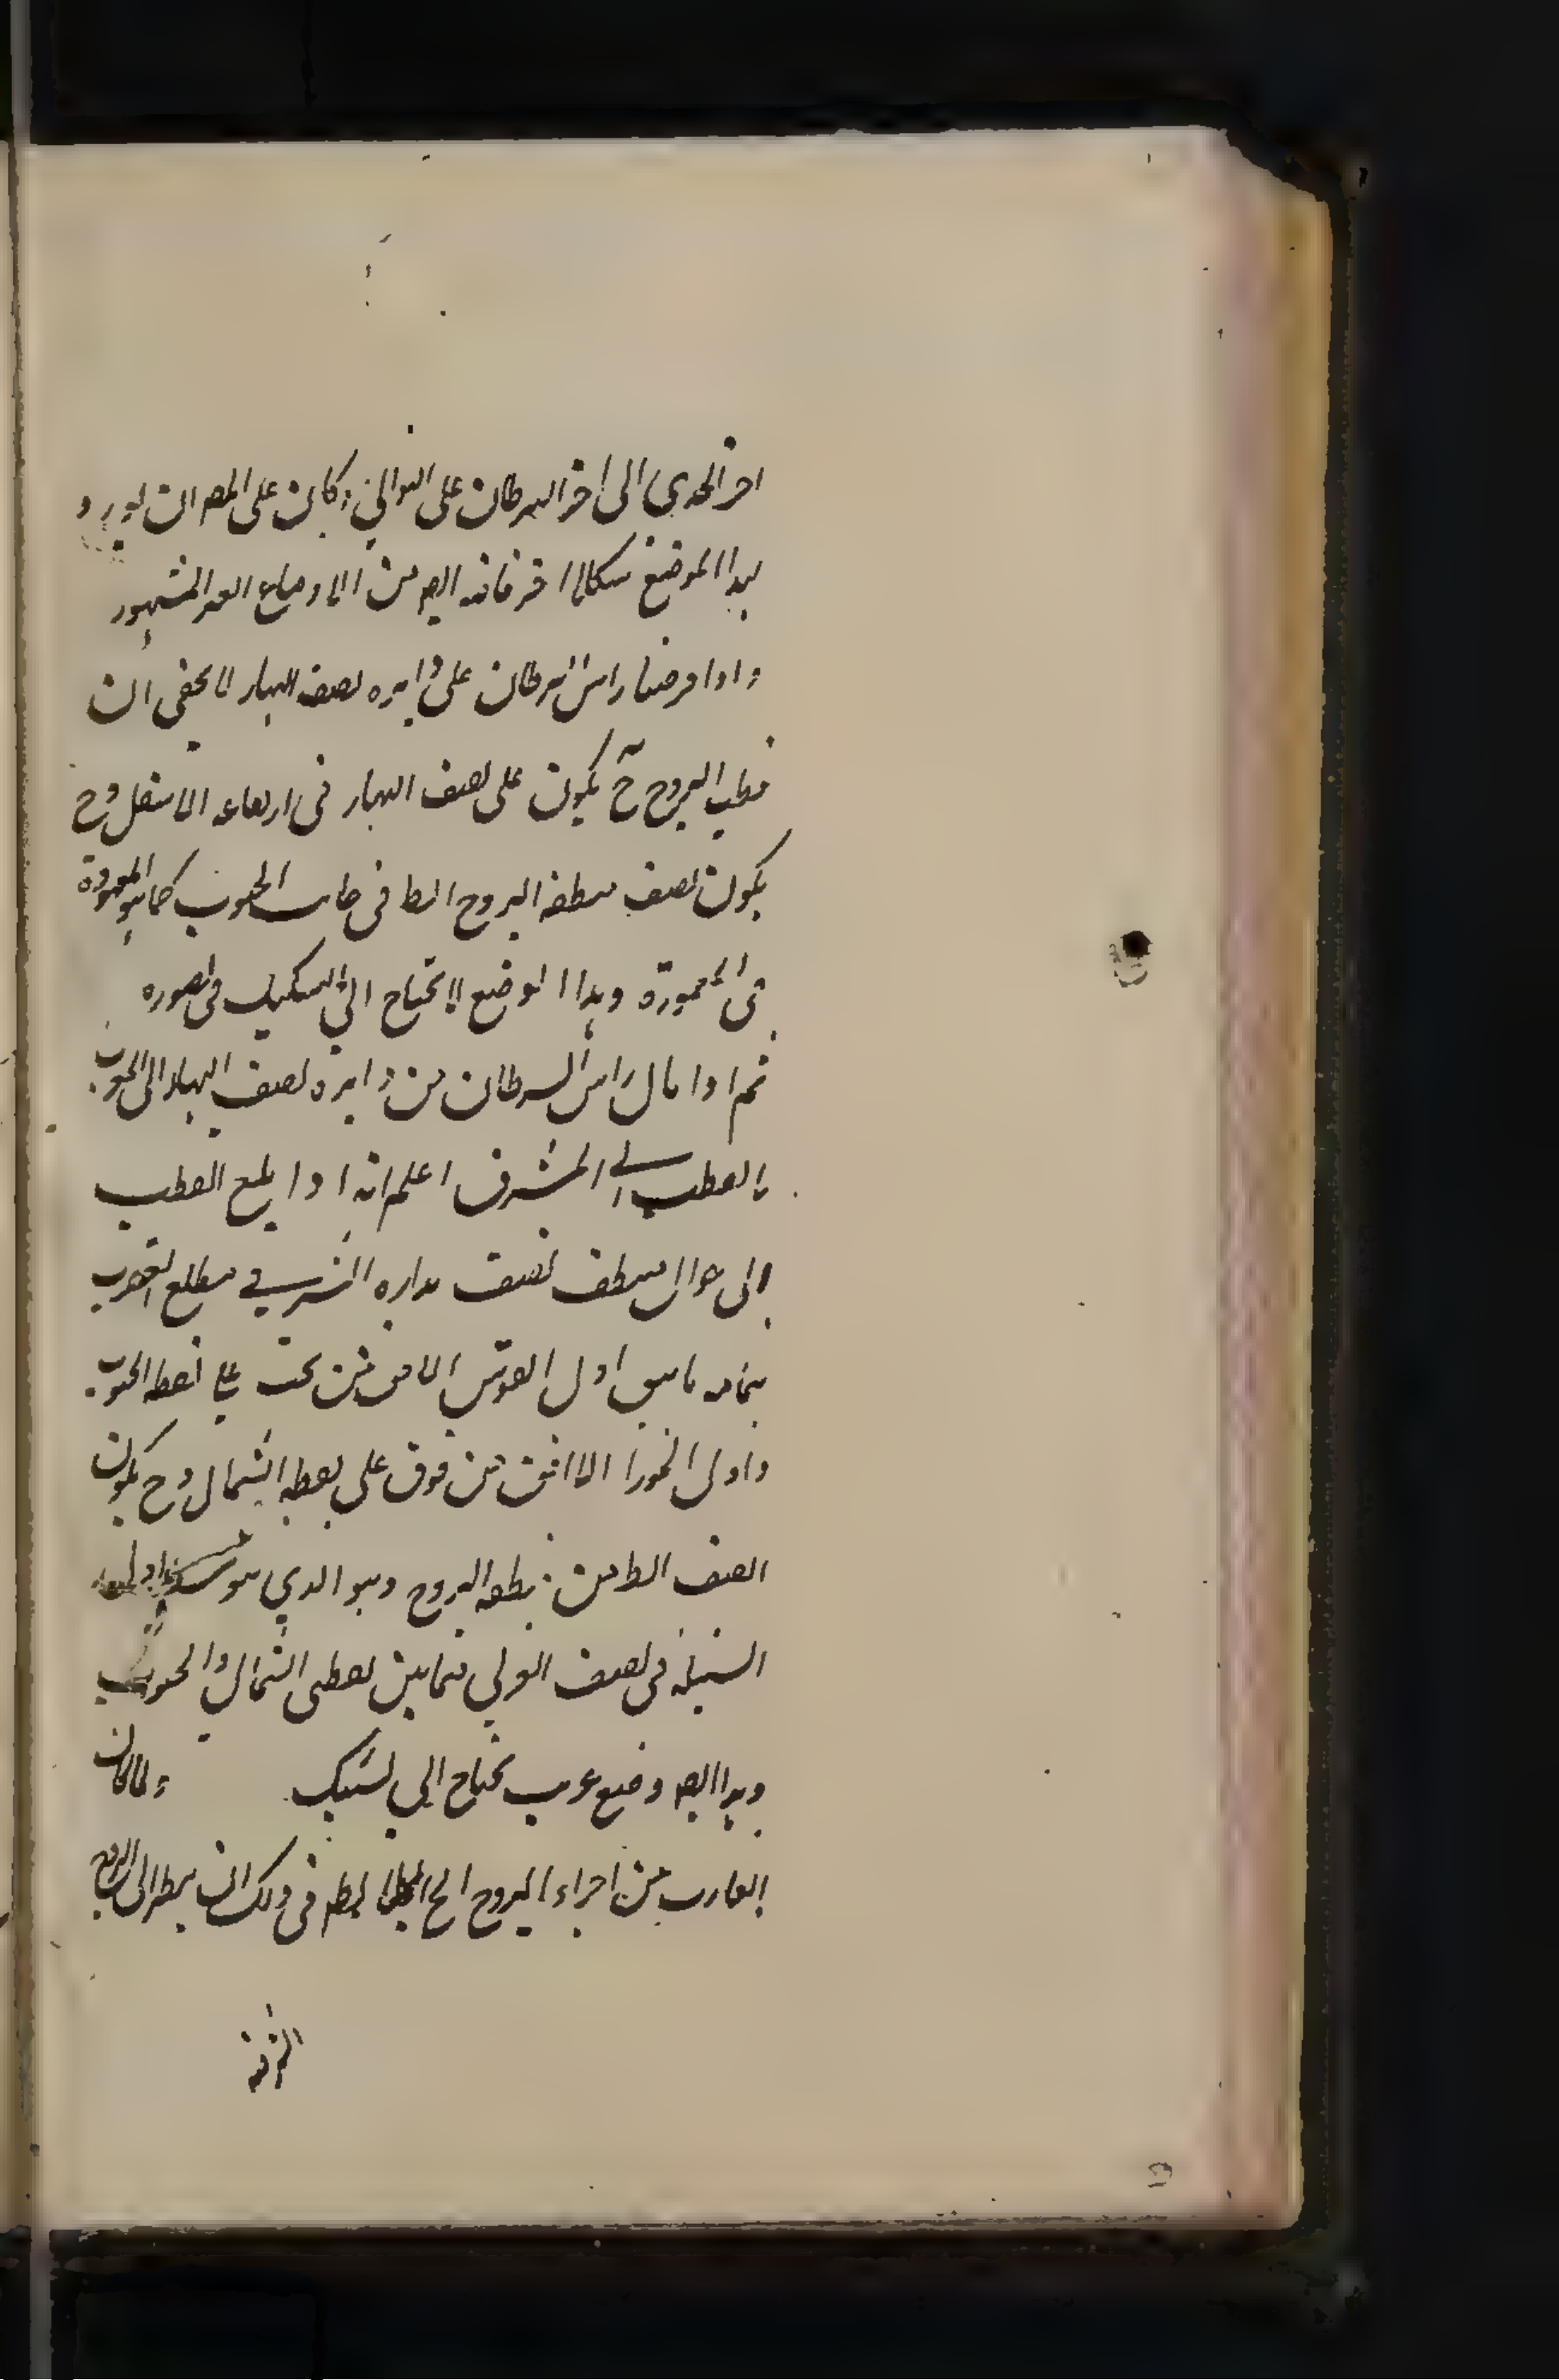 اخر الجدى الى اخر السرطان على التوالي وكان على المص ان يورد
لهذا الموضع شكلا اخر فانه ايض من الاوضاع الغير المشهور
واذا فرضنا راس السرطان على دايره نصف النهار لا يخفى ان
قطب البروج ح يكون على نصف النهار فى ارتفاعه الاسفل وح
يكون نصف منطقه البروج الظا فى جانب الجنوب كما هو المعهودة
فى المعمورة وهذا الوضع لا يحتاج الى التشكيل فى تصوره
ثم اذا مال راس السرطان من دايره نصف النهار الى الغرب
والقطب الى المشرق اعلم انه اذا بلغ القطب
الى حوالى منتصف نصف مداره الشرقي مطلع العقرب
بتمامه ماس اول القوس الافق من تحت على نقطه الجنوب
واول الجوزا الافق من فوق على نقطه الشمال وح يكون
النصف الظا من منطقه البروج وهو الذي هو
السنبلة فى نصف الغربي فيما بين نقطى الشمال والجنوب
وهذا ايض وضع غريب يحتاج الي تشكيل ولما كان
الغارب من اجزاء البروج الخ فى ذلك ان ينظر الى البروج
الشرقية